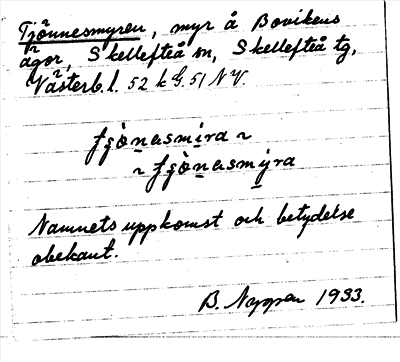 Tjönnesmyren, myr å Bovikens
ägor, Skellefteå sn, Skellefteå tg,
Västerb. l. 52 k G. 51 N V.
fjònasmira ~
~ fjònasmýra
Namnets uppkomst och betydelse
obekant.
B. Nygren 1933.